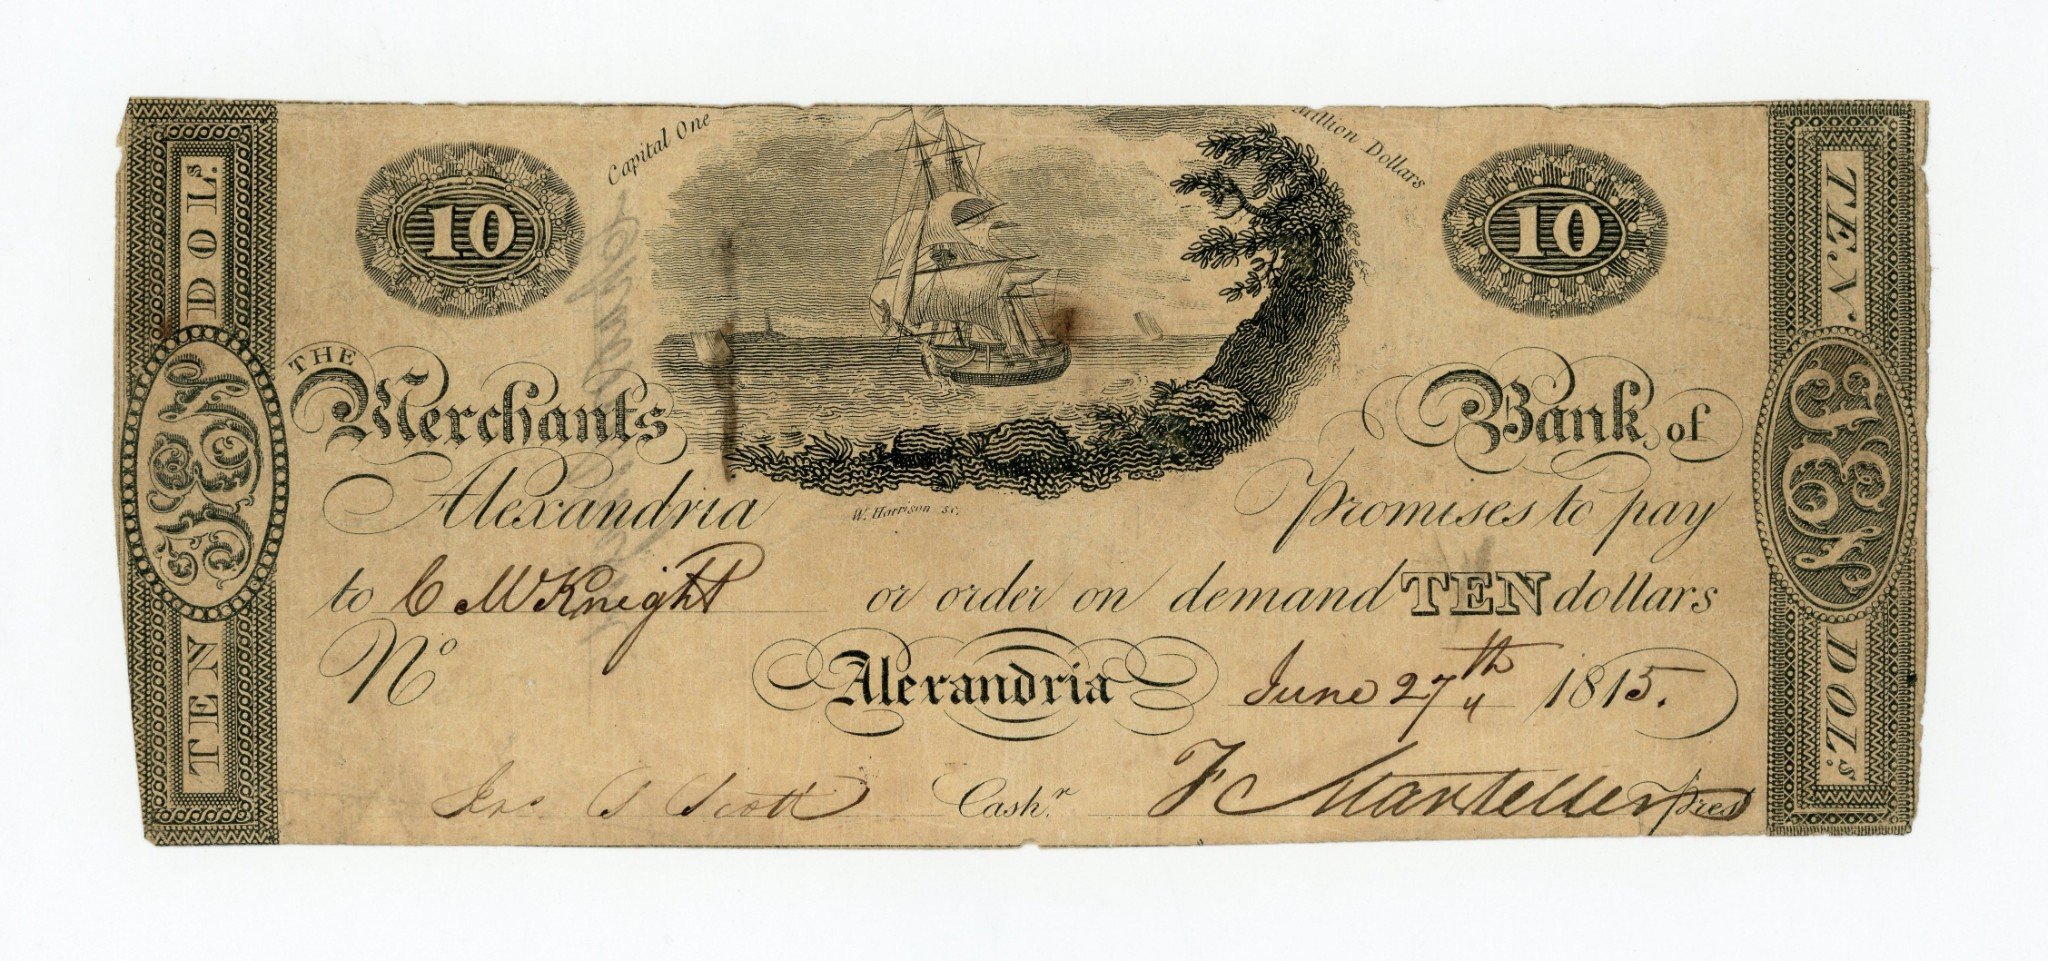 Capital One Million Dollars
10 10
THE Merchants Bank of
Alexandria Promises to pay
W. Harrison sc.
to C McKnight or order on demand TEN dollars
No Alexandria June 27th 1815.
Jno Scott Cashr. F Pres
TEN TEN DOLs.
TEN TEN DOLs.